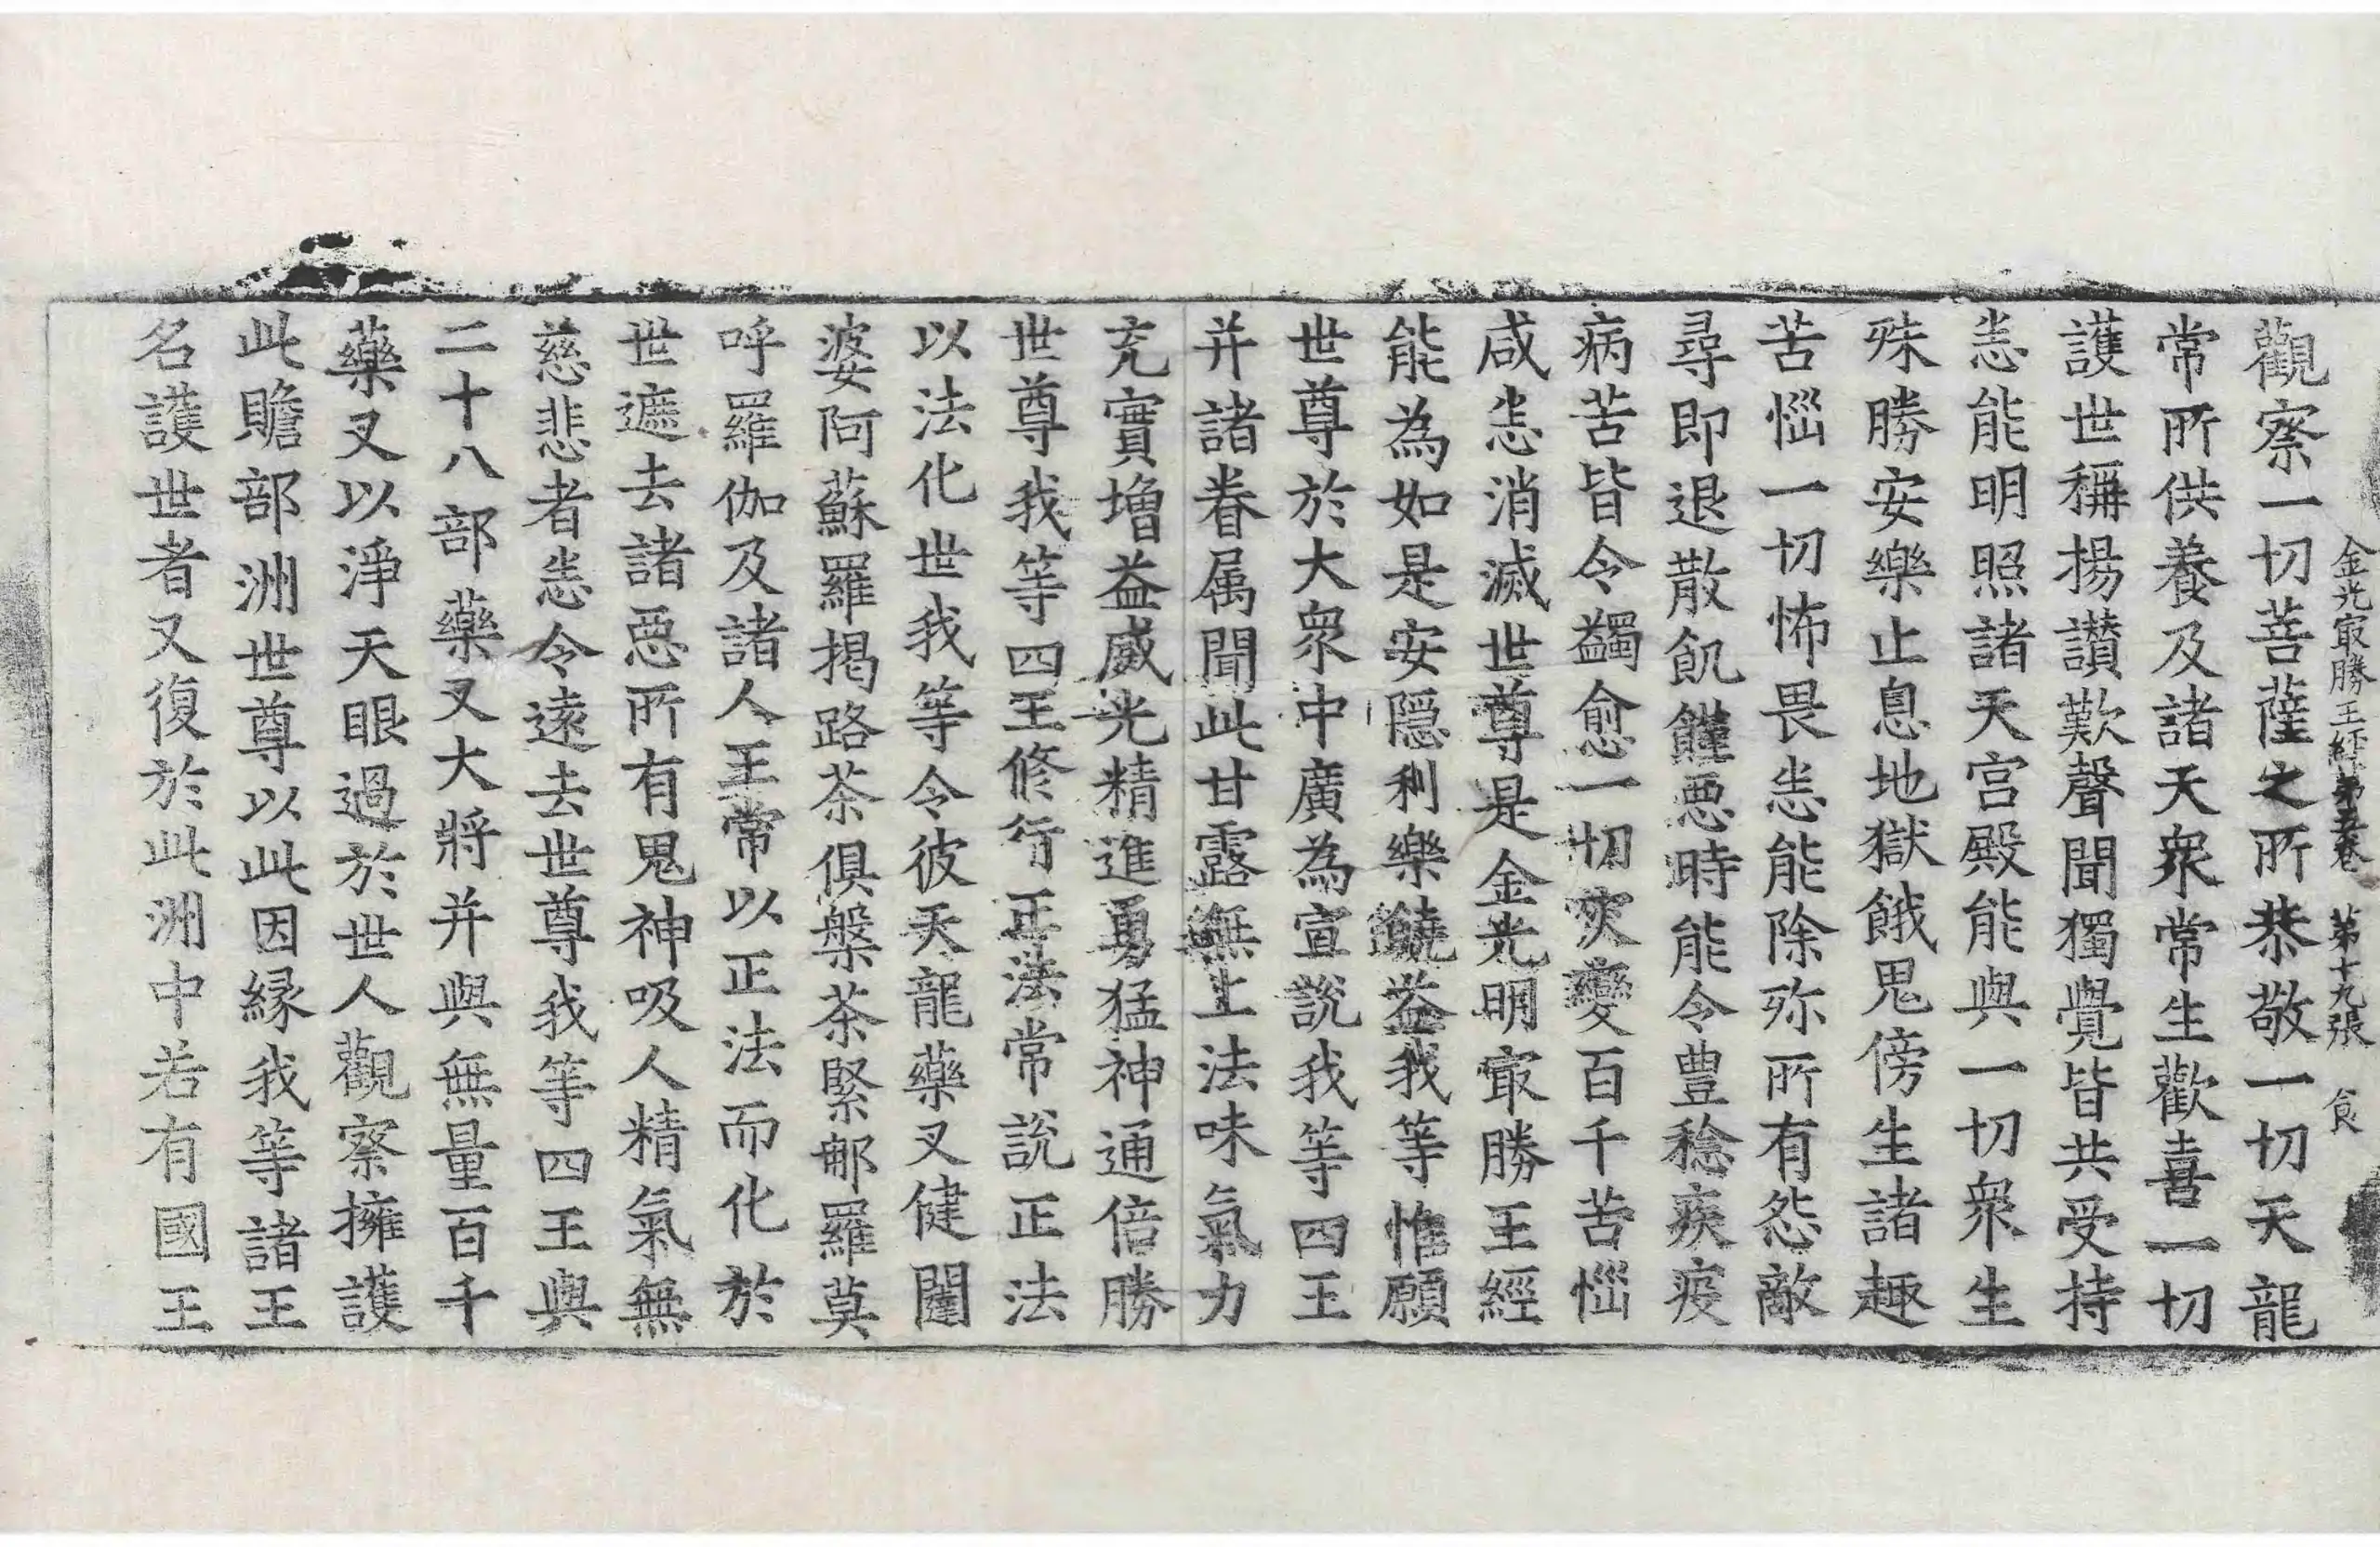 金光㝡勝王經第五卷 第十九張 食
觀察一切菩薩之所恭敬一切天龍
常所供養及諸天衆常生歡喜一切
護世稱揚讃歎聲聞獨覺皆共受持
悉能明照諸天宫殿能與一切衆生
殊勝安樂止息地獄餓鬼傍生諸趣
苦惱一切怖畏悉能除殄所有怨敵
尋即退散飢饉惡時能令豊稔疾疫
病苦皆令蠲愈一切灾變百千苦惱
咸悉消滅世尊是金光明㝡勝王經
能為如是安隱利樂饒益我等惟願
世尊於大衆中廣為宣説我等四王
并諸眷属聞此甘露無上法味氣力
充實增益威光精進勇猛神通倍勝
世尊我等四王修行正法常説正法
以法化世我等令彼天龍藥叉健闥
婆阿蘇羅揭路茶俱槃茶緊那羅莫
呼羅伽及諸人王常以正法而化於
世遮去諸惡所有鬼神吸人精氣無
慈悲者悉令遠去世尊我等四王與
二十八部藥叉大將并與無量百千
藥叉以淨天眼過於世人觀察擁護
此贍部洲世尊以此因縁我等諸王
名護世者又復於此洲中若有國王